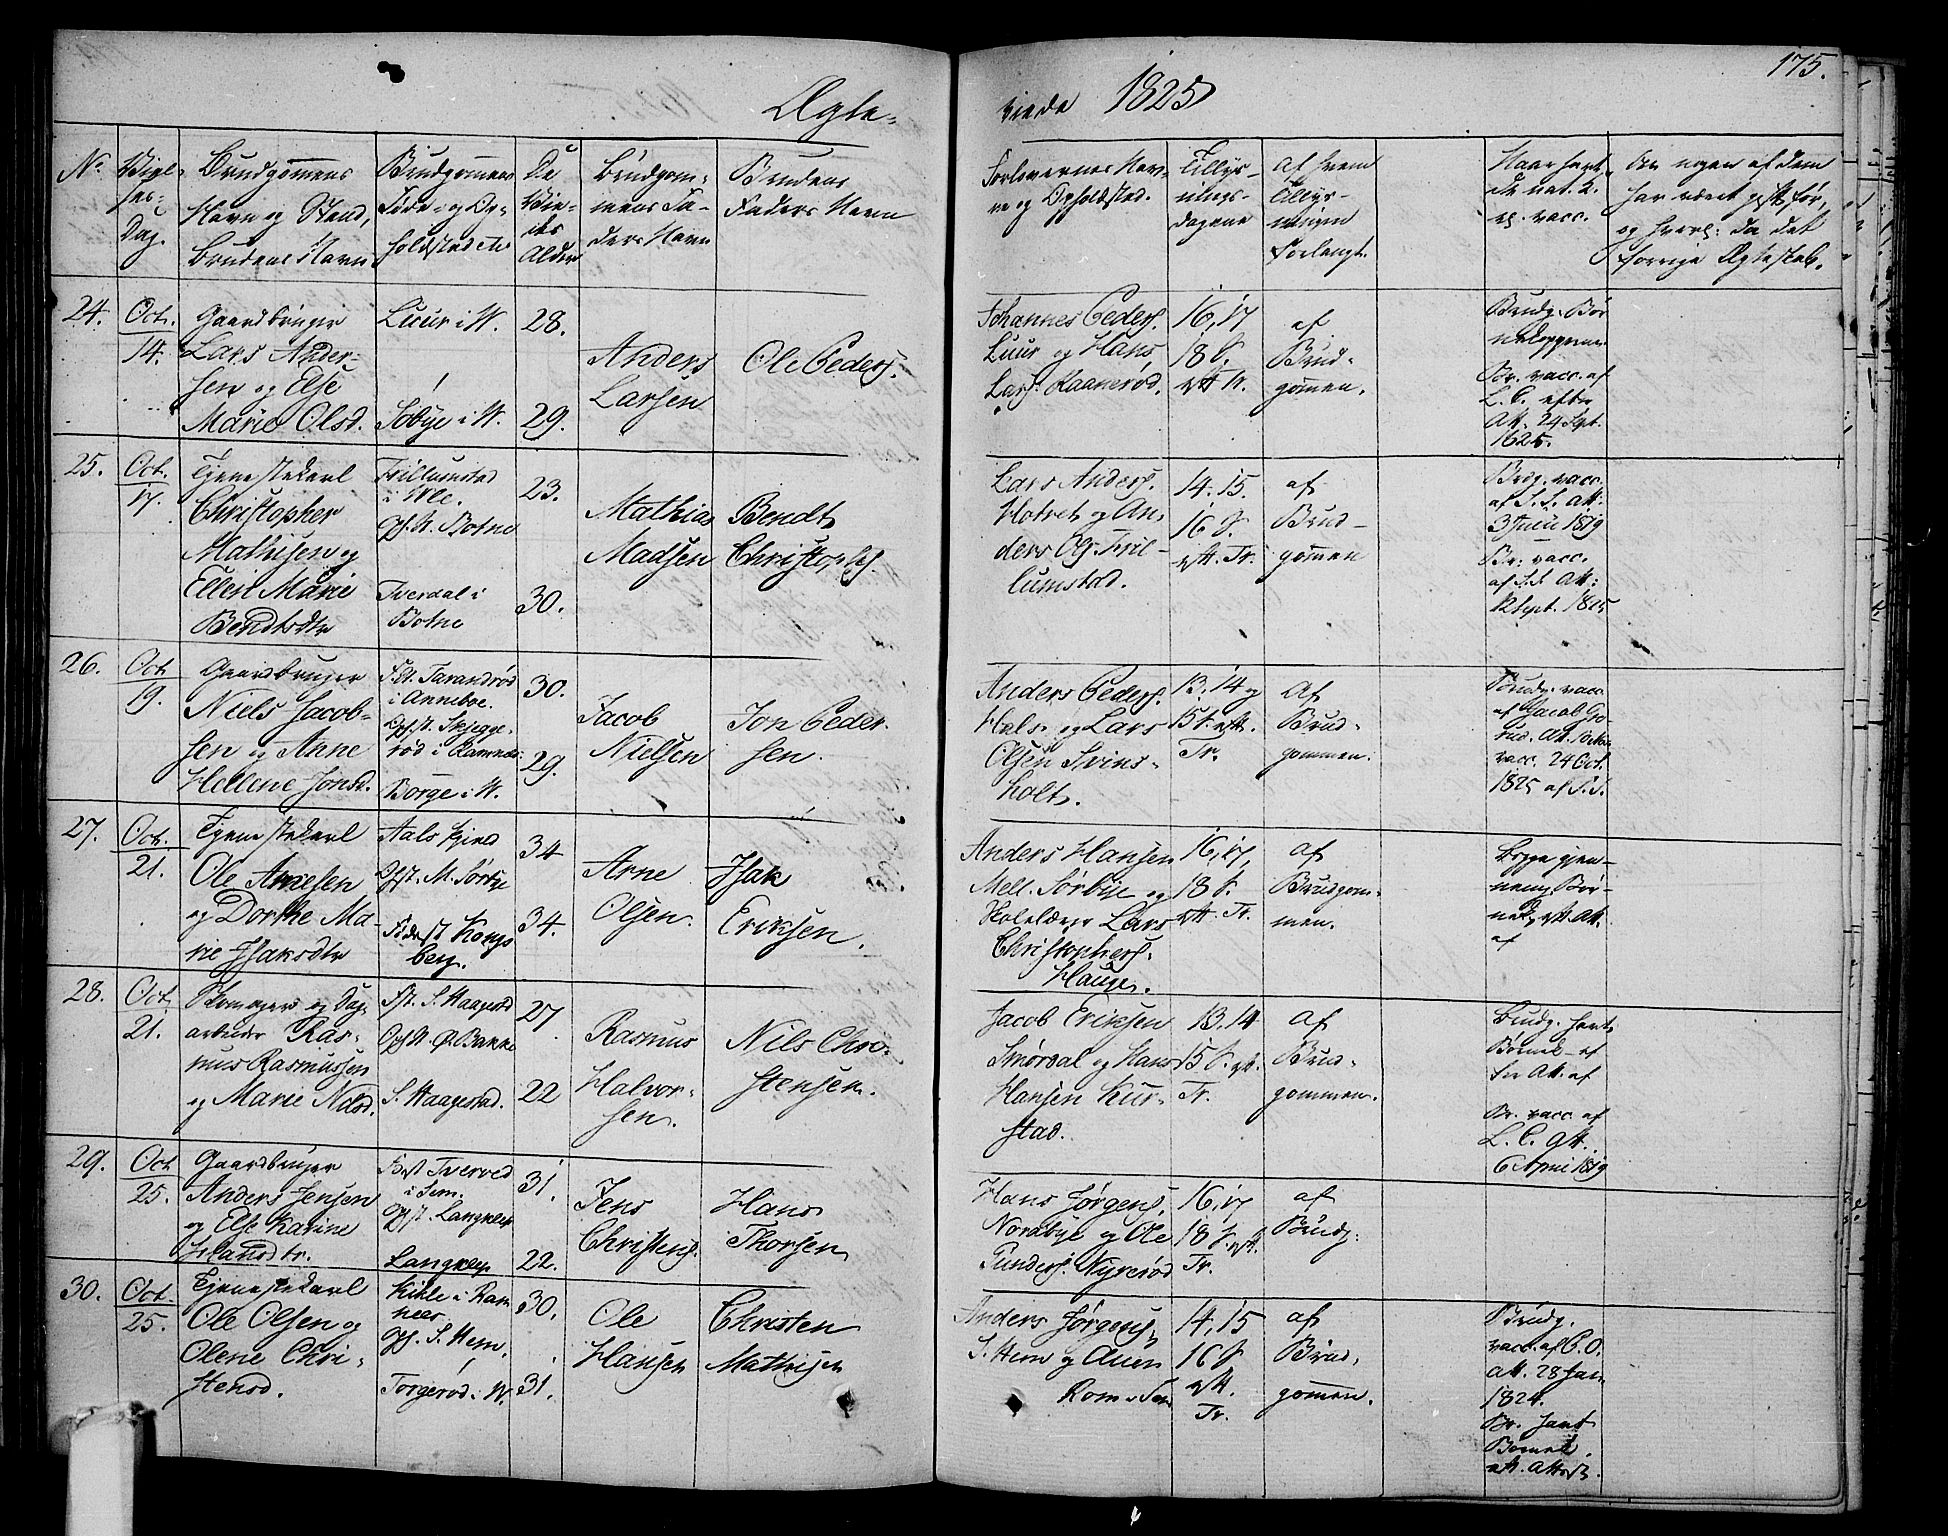 175.
Ægte-
viede 1825
No.
Viel-
ses-
Dag.
Brudgomens
Navn og Stand,
Brudens Navn
Brudgomens
Føde- og Op-
holdsstæd etc
De
Vie-
des
Alder
Brudgom-
mens Fa-
ders Navn
Brudens
Faders Navn
Forlovernes Nav-
ne og Opholdsted.
Tillys-
nings-
dagene
Af hvem
Tillys-
ningen
Forlangt.
Naar havt
de nat. K.
el. vacc.
Om nogen af dem
har været gift før,
og hvorl: da det
forrige Ægteskab.
24.
Oct.
14.
Gaardbruger
Lars Ander-
sen og Else
Marie Olsd.
Luur i W.
Sobye i W.
28.
29.
Anders
Larsen
Ole Peders.
Johannes Peders.
Luur og Hans
Lars. Raanerød.
16, 17
18 S.
af
Brud-
gomen.
Brudg. Bør
Br. vacc. af
L. C. efter
Att. 24 Sept.
1825.
25.
Oct.
17.
Tjenestekarl
Christopher
Mathisen og
Ellen Marie
Bendtsdtr
Trillumstad
Botne
Tverdal i
Botne
23.
30.
Mathias
Madsen
Bendt
Christophs.
Lars Anders.
Holret og An-
ders Ols. Tril-
lumstad.
14. 15.
16 S.
Tr.
af
Brud-
gomen
Brdg. vacc.
af S. S. Att:
3 Juni 1819
Br: vacc.
af S.S Att:
12 Sept. 1815
26.
Oct.
19.
Gaardbruger
Niels Jacob-
sen og Anne
Hellene Jonsd.
i Anneboe.
Opst. Skjegge-
rød i Ramnes.
Borge i W.
30.
29.
Jacob
Nielsen
Jon Peder
sen.
Anders Peders.
Hals. og Lars
Olsen Svins-
holt.
13, 14 og
Tr.
Af
Brud-
gommen.
Brudg. vacc.
af Jacob
vacc. 24 Oct.
1825 af S.S.
27.
Oct.
21.
Tjenestekarl
Ole Arnesen
og Dorthe Ma-
rie Isaksdtr
Aals
Opst. M. Sørbye
Fødest Kongs
berg.
34
34.
Arne
Olsen.
Isak
Eriksen.
Anders Hansen
Mell. Sørbye og
Lars
Christophers.
Hauge.
16, 17,
Tr.
af
Brudgom-
men.
Begge gjen-
af
28.
Oct
21.
Skomager og Dag-
arbeider Ras-
mus Rasmussen
og Marie Nilsd.
Fst. S. Haagestad
S. Haagestad.
27
22
Rasmus
Halvor-
sen.
Nils Chri-
stensen.
Jacob Eriksen
Smørdal og Hans
Hansen Kur-
stad.
13, 14
Tr.
af
Brud-
gommen.
Brudg. havt
Br. vacc. af
L. C. Att.
6 April 1819
29.
Oct
25.
Gaardbruger
Anders Jensen
og Else Karine
Hansdtr.
i Sem.
Opst. Langklep
Langklep
31.
22.
Jens
Christens.
Hans
Thorsen
Hans Jørgens.
Nordbye og Ole
Gunders. Nyrerød
16, 17
Tr.
af
Brudg:
30.
Oct.
25.
Tjenestekarl
Ole Olsen og
Olene Chri-
stensd.
Kikle i Ram
nes
S. Hem.
Torgerød i W.
30.
31.
Ole
Hansen
Christen
Mathisen
Anders Jørgens.
S. Hem og
14, 15
16 S
Tr.
af
Brud-
gomen.
Brudg.
vacc. af P. O.
Att. 28 Jan
1824.
Br. havt